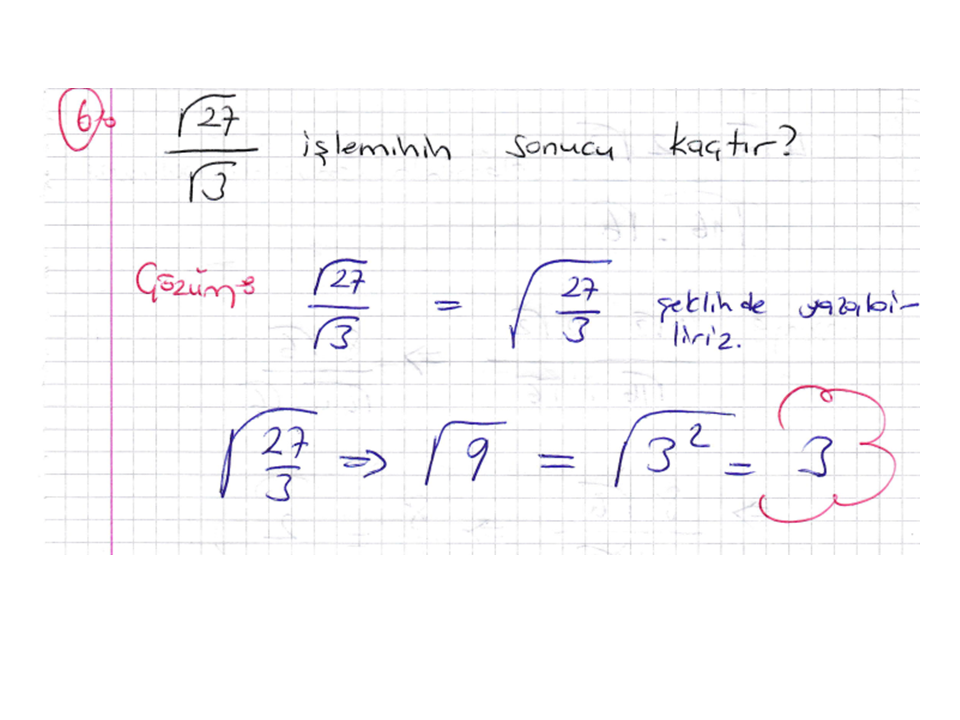 6) √27 / √3 işleminin sonucu kaçtır?
Çözüm: √27 / √3 = √(27/3) şeklinde yazabi-
liriz.
√(27/3) ⇒ √9 = √3² = 3